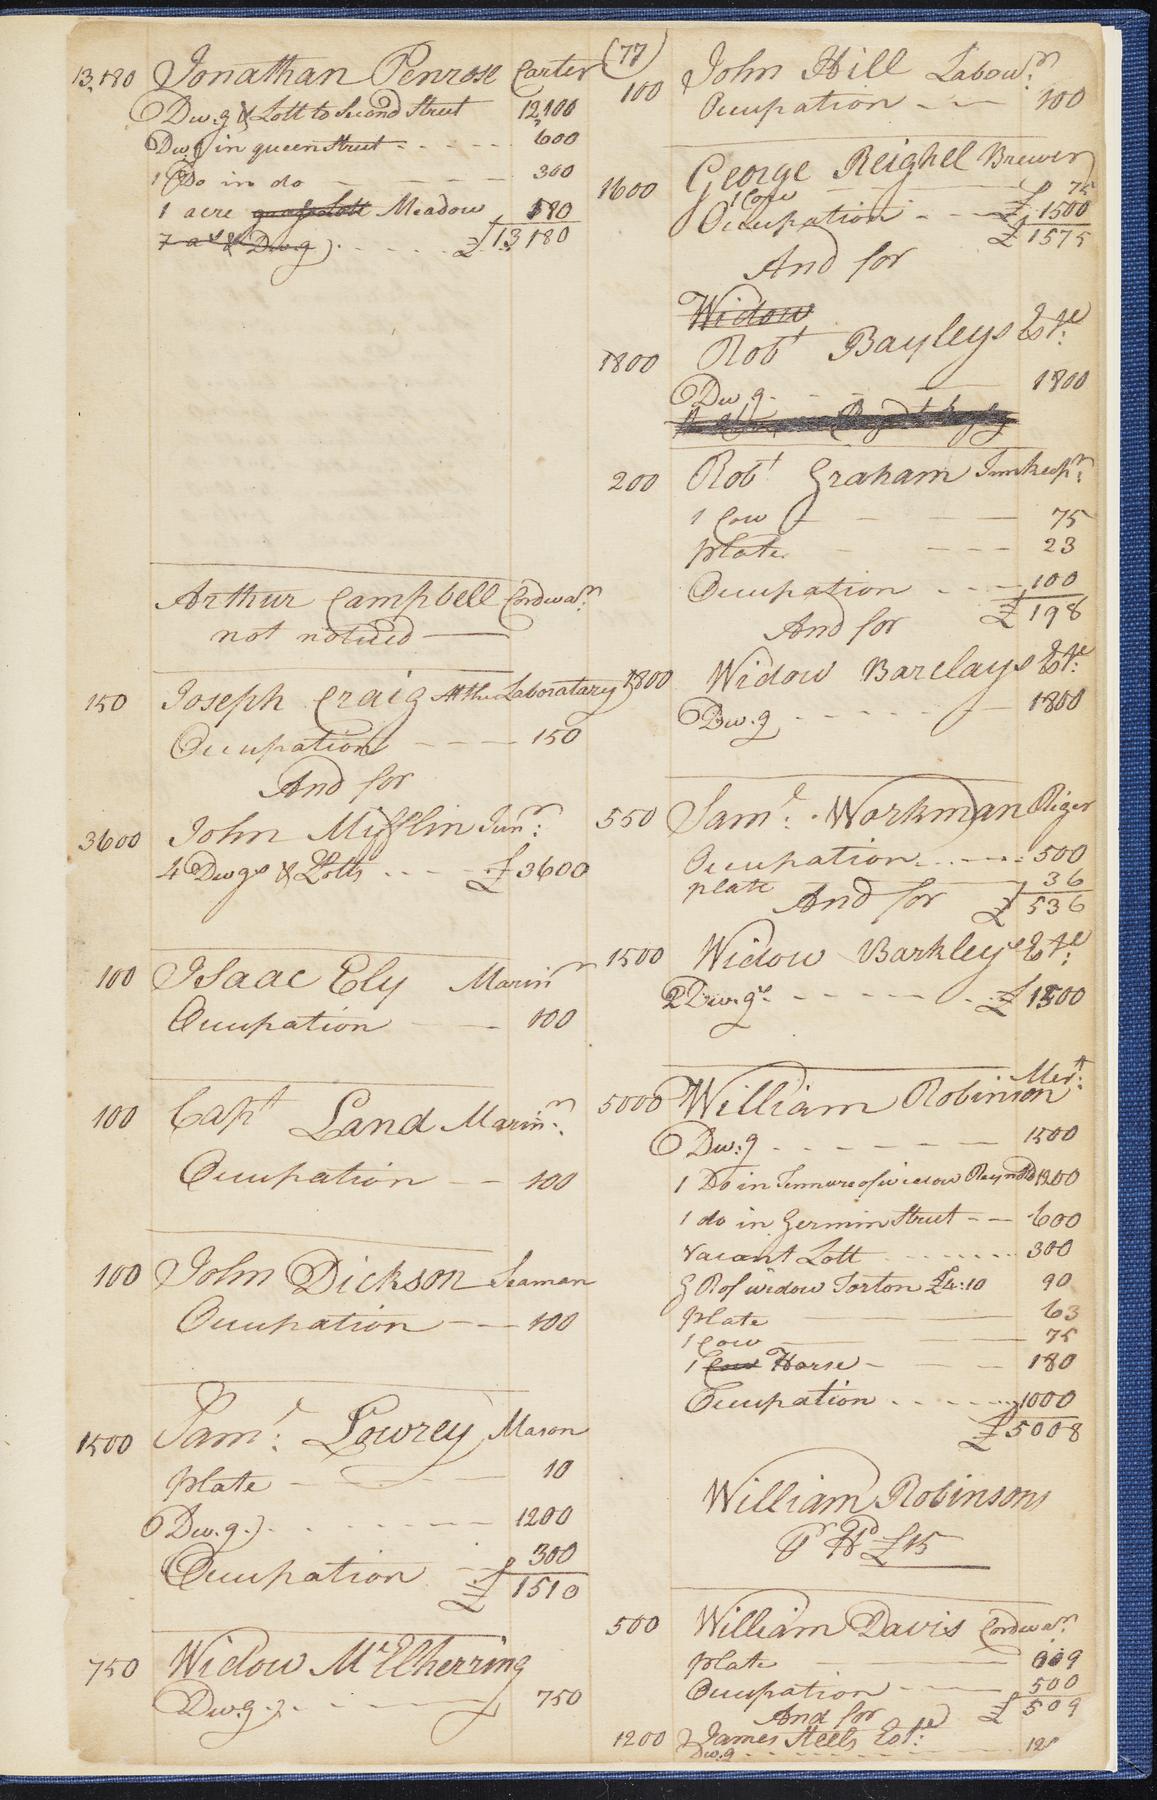 (77)
13,180 Jonathan Penrose Carter
Dw.g & Lott to Second Street 12,100
Dw.g in queen Street 600
1 Do in do 300
1 acre Meadow 180
£13180
Arthur Campbell Cordwar.
not noticed
150 Joseph Craig At the Laboratary
Occupation 150
And for
3600 John Mifflin Junr:
4 Dwgs & Lotts £3600
100 Isaac Ely Marinr
Occupation 100
100 Capt Land Marinr:
Occupation 100
100 John Dickson Seaman
Occupation 100
1500 Saml: Lowrey Mason
plate 10
Dw.g.) 1200
Occupation 300
£1510
750 Widow McElherring
Dwg.). 750
100 John Hill Labour:
Occupation 100
1600 George Reighel Brewer
1 Cow 75
Occupation £1500
£1575
And for
Widow
1800 Robt Bayleys Este:
Dw g. 1800
200 Robt Graham Innkeepr:
1 Cow 75
plate 23
Occupation 100
£198
And for
1800 Widow Barclays Este:
Dw.g 1800
550 Saml: Workman Riger
Occupation 500
plate 36
And for £536
1500 Widow Barkleys Este:
2 Dw.gs £1500
5000 William Robinson Mert:
Dw:g 1500
1 Do in Tennure of widow 1200
1 do in Germin Street 600
vacant Lott 300
G R of widow Torton £4:10 90
plate 63
1 Cow 75
1 Cow Horse 180
Occupation 1000
£5008
William Robinsons
£15
500 William Davis Cordwar.
plate 009
Occupation 500
And for £509
1200 James Steels Este:
Dw.g 12